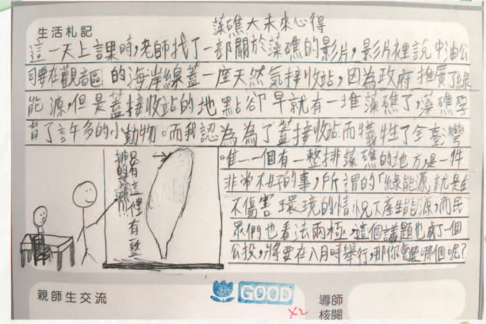 生活札記
藻礁大未來心得
這一天上課時，老師找了一部關於藻礁的影片，影片裡說中油公
司要在觀音區的海岸線蓋一座天然氣接收站，因為政府推廣了綠
能源，但是蓋接收站的地點卻早就有一堆藻礁了，藻礁孕
育了許多的小動物。而我認為為了蓋接收站而犧牲了全臺灣
唯一一個有一整排藻礁的地方是一件
非常不好的事，所謂的「綠能源」就是在
不傷害環境的情況下產生能源，而民
眾們也看法兩極，這個議題也成了一個
公投，將要在八月時舉行，那你會選哪個呢？
只有這裡有整
排的藻礁
親師生交流
GOOD
x2
導師
核閱